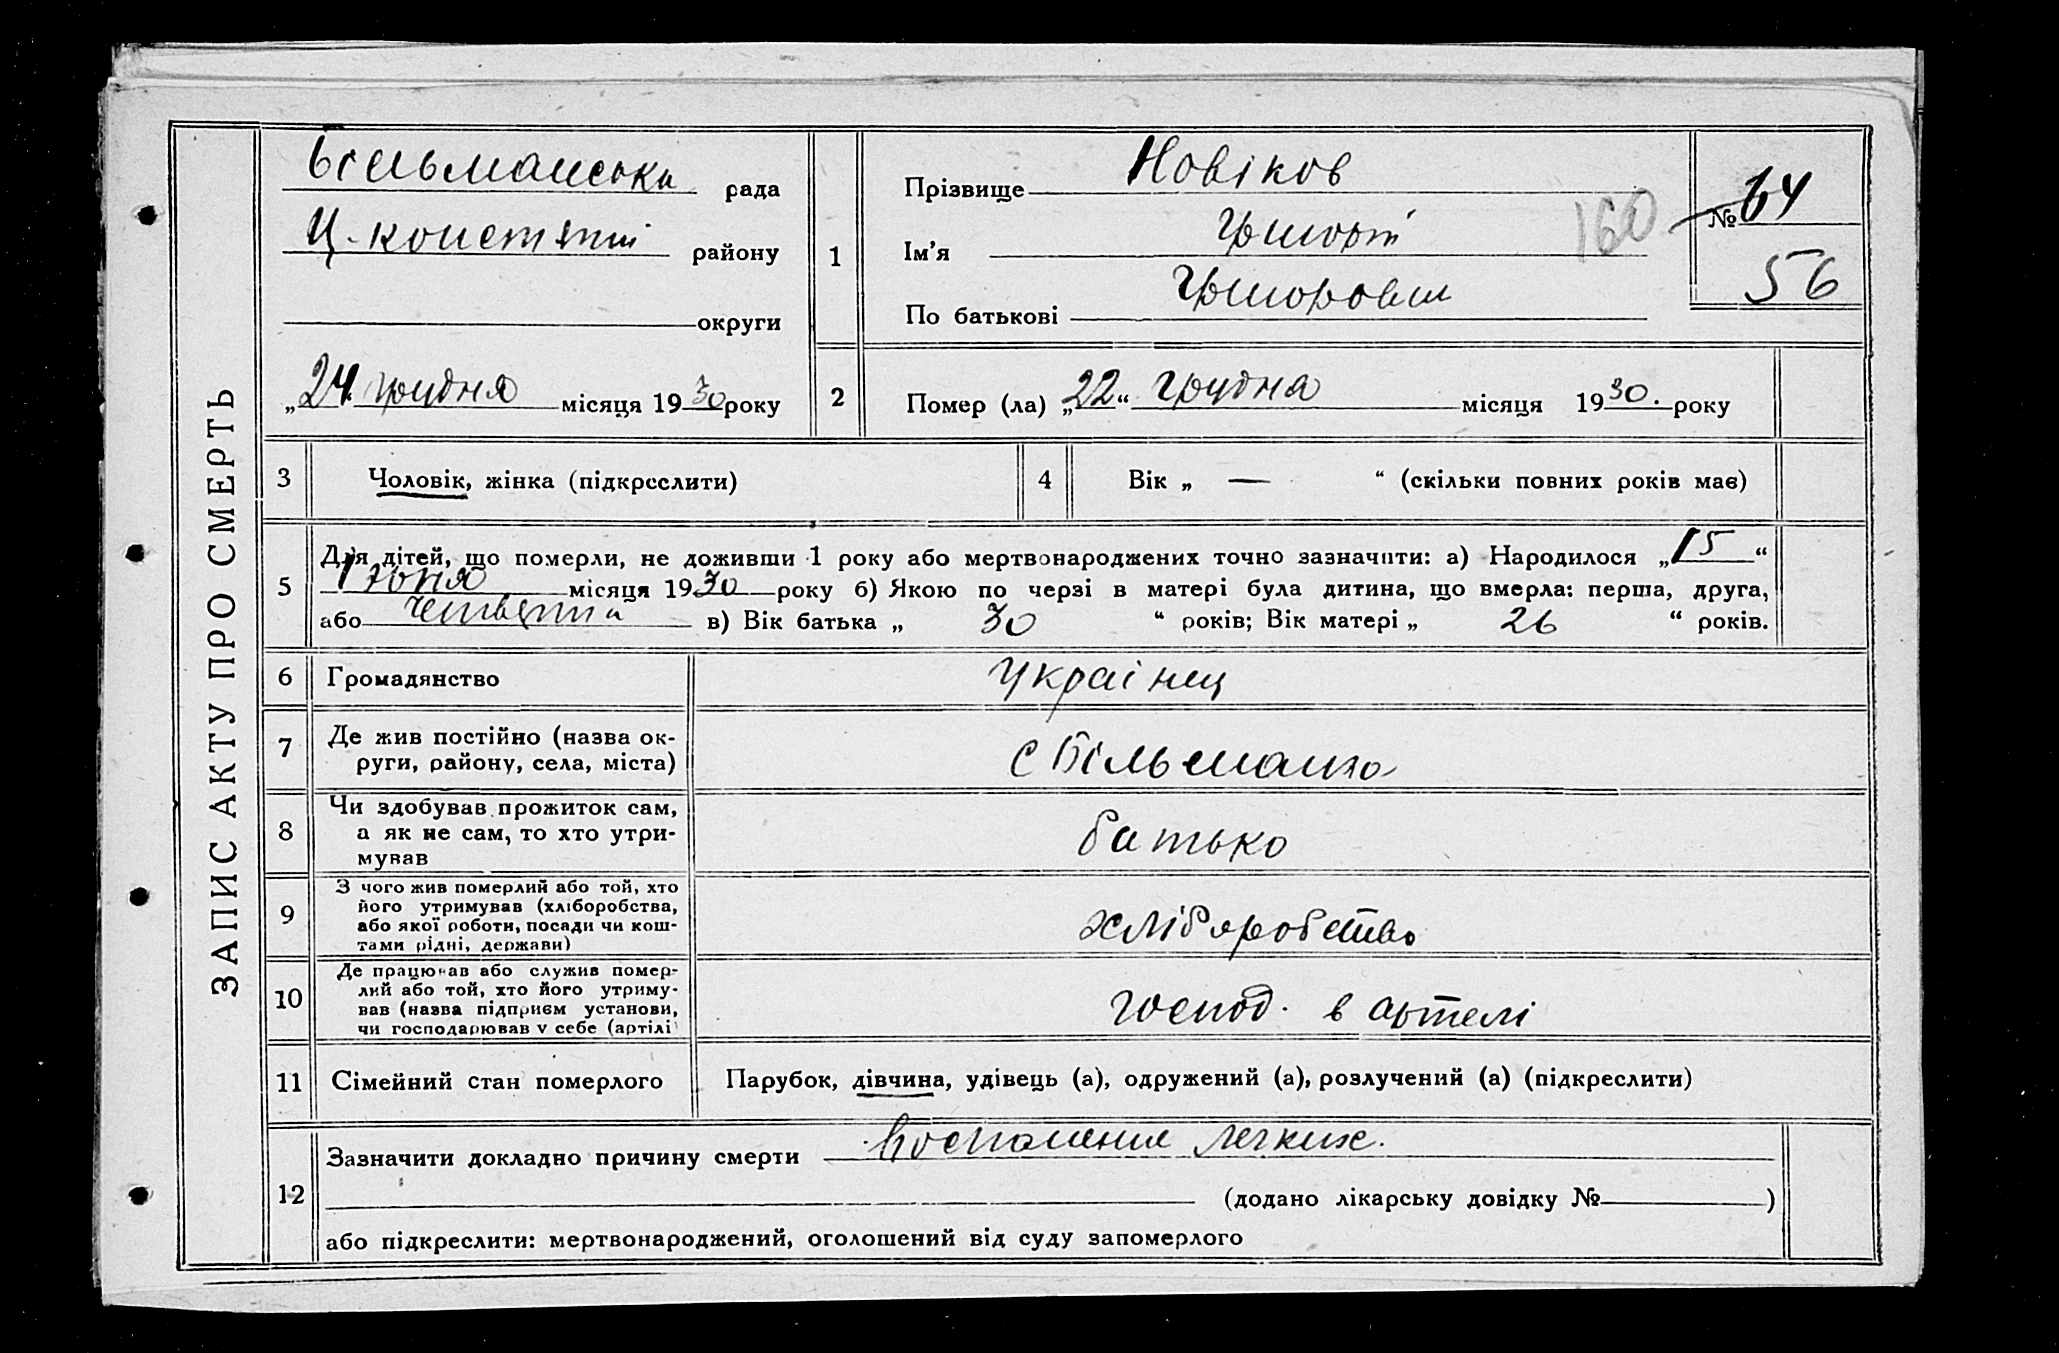 ЗАПИС АКТУ ПРО СМЕРТЬ
Більманська рада
Ц-констянт району
округи
„24 грудня місяця 1930 року
1
Прізвище Новіков
Ім'я Григорій
По батькові Григорович
160
№ 64
56
2
Помер (ла) „22“ грудна місяця 1930. року
3
Чоловік, жінка (підкреслити)
4
Вік „ — “ (скільки повних років має)
5
Для дітей, що померли, не доживши 1 року або мертвонароджених точно зазначити: а) Народилося „15“
Іюня місяця 1930 року б) Якою по черзі в матері була дитина, що вмерла: перша, друга,
або четверта в) Вік батька „ 30 “ років; Вік матері „ 26 “ років.
6
Громадянство
Українец
7
Де жив постійно (назва ок-
руги, району, села, міста)
с Більманка
8
Чи здобував прожиток сам,
а як не сам, то хто утри-
мував
батько
9
З чого жив померлий або той, хто
його утримував (хліборобства,
або якої роботи, посади чи кош-
тами рідні, держави)
хліборобство
10
Де працював або служив помер-
лий або той, хто його утриму-
вав (назва підприєм установи,
чи господарював у себе (артілі)
господ. в артелі
11
Сімейний стан померлого
Парубок, дівчина, удівець (а), одружений (а), розлучений (а) (підкреслити)
12
Зазначити докладно причину смерти Воспаление легких.
(додано лікарську довідку № )
або підкреслити: мертвонароджений, оголошений від суду запомерлого